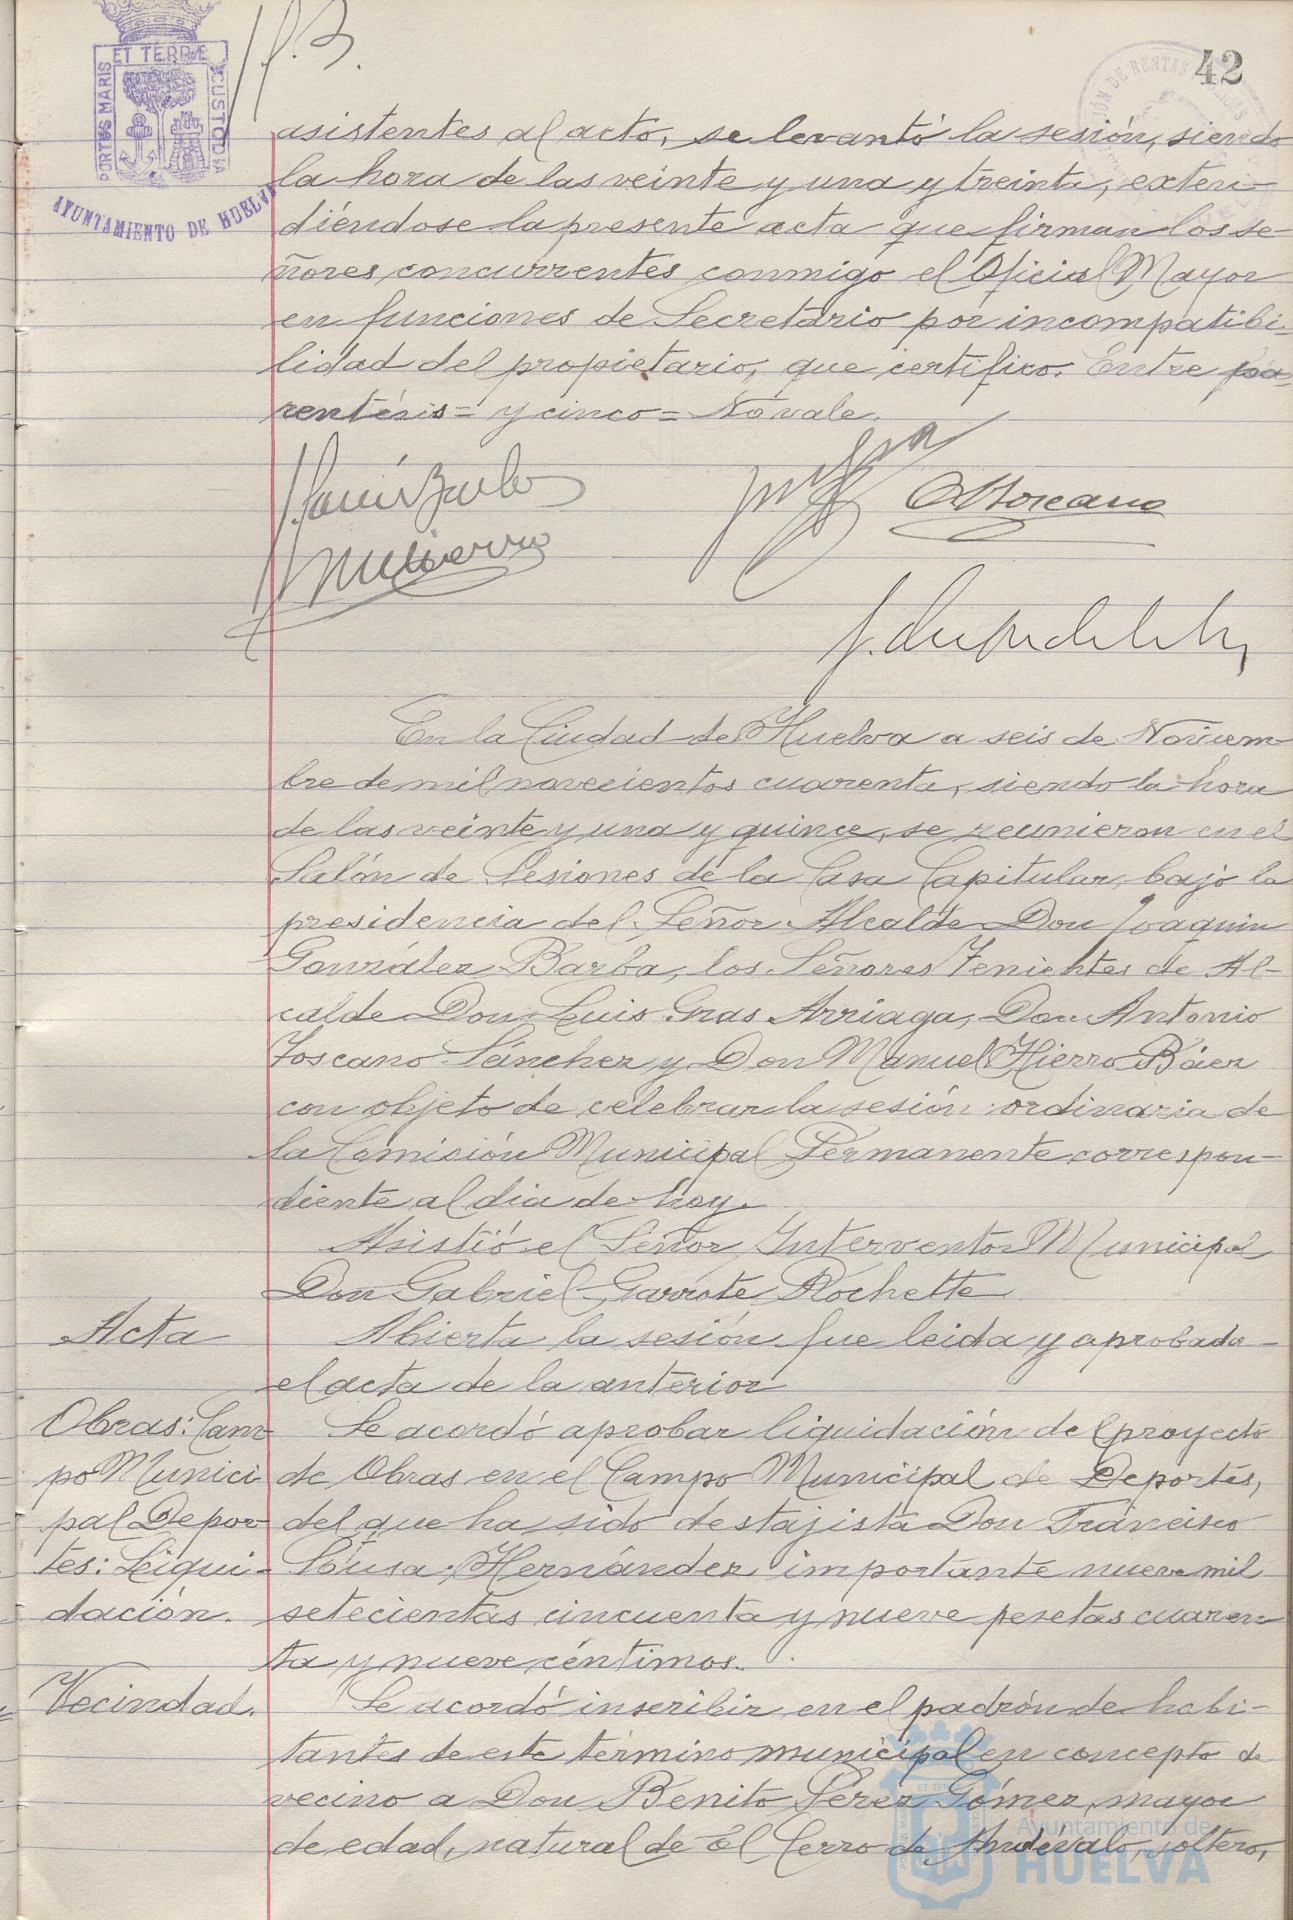 42
PORTUS MARIS ET TERRE CUSTODIA
AYUNTAMIENTO DE HUELVA
asistentes al acto, se levantó la sesión, siendo
la hora de las veinte y una y treinta, exten-
diéndose la presente acta que firman los se-
ñores concurrentes conmigo el Oficial Mayor
en funciones de Secretario por incompatibi-
lidad del propietario, que certifico. Entre pa-
rentésis = y cinco = No vale.
En la Ciudad de Huelva a seis de Noviem-
bre de mil novecientos cuarenta, siendo la hora
de las veinte y una y quince, se reunieron en el
Salón de Sesiones de la Casa Capitular, bajo la
presidencia del Señor Alcalde Don Joaquin
González Barba, los Señores Tenientes de Al-
calde Don Luis Gras Arriaga, Don Antonio
Toscano Sánchez y Don Manuel Hierro Báez
con objeto de celebrar la sesión ordinaria de
la Comisión Municipal Permanente correspon-
diente al dia de hoy.
Asistió el Señor Interventor Municipal
Don Gabriel Garrote Rochette
Acta
Abierta la sesión fue leida y aprobada
el acta de la anterior
Obras: Cam-
po Munici
pal Depor-
tes: Liqui-
dación.
Se acordó aprobar liquidación del proyecto
de Obras en el Campo Municipal de Deportes,
del que ha sido destajista Don Francisco
Sousa Hernández importante nueve mil
setecientas cincuenta y nueve pesetas cuaren-
ta y nueve céntimos.
Vecindad.
Se acordó inscribir en el padrón de habi-
tantes de este término municipal en concepto de
vecino a Don Benito Pérez Gómez, mayor
de edad, natural de El Cerro de Andévalo, soltero,
Ayuntamiento de
HUELVA